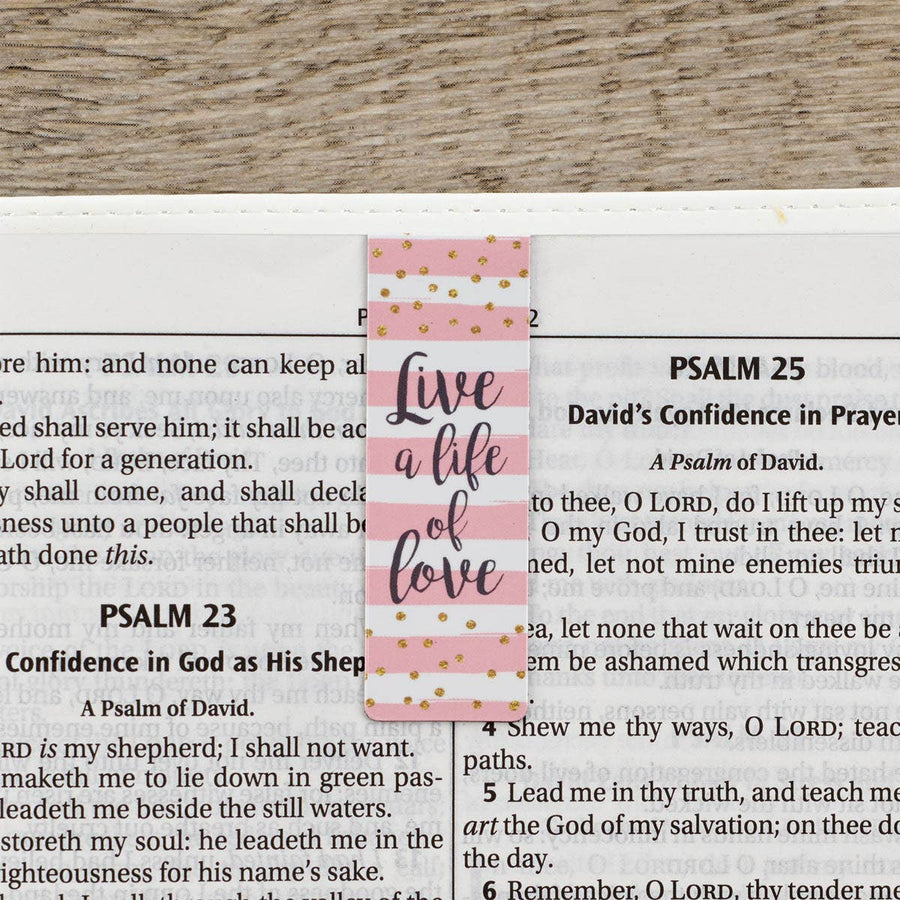 P
2
ore him: and none can keep al
ed shall serve him; it shall be ac
Lord for a generation.
y shall come, and shall decla
sness unto a people that shall be
ath done this.
PSALM 23
Confidence in God as His Shep
A Psalm of David.
ORD is my shepherd; I shall not want.
maketh me to lie down in green pas-
leadeth me beside the still waters.
storeth my soul: he leadeth me in the
ighteousness for his name's sake.
Live
a life
of
love
PSALM 25
David's Confidence in Prayer
A Psalm of David.
to thee, O LORD, do I lift up my s
O my God, I trust in thee: let m
ned, let not mine enemies trium
ea, let none that wait on thee be a
em be ashamed which transgress
4 Shew me thy ways, O LORD; teac
paths.
5 Lead me in thy truth, and teach me
art the God of my salvation; on thee do
the day.
6 Remember, O LORD, thy tender me